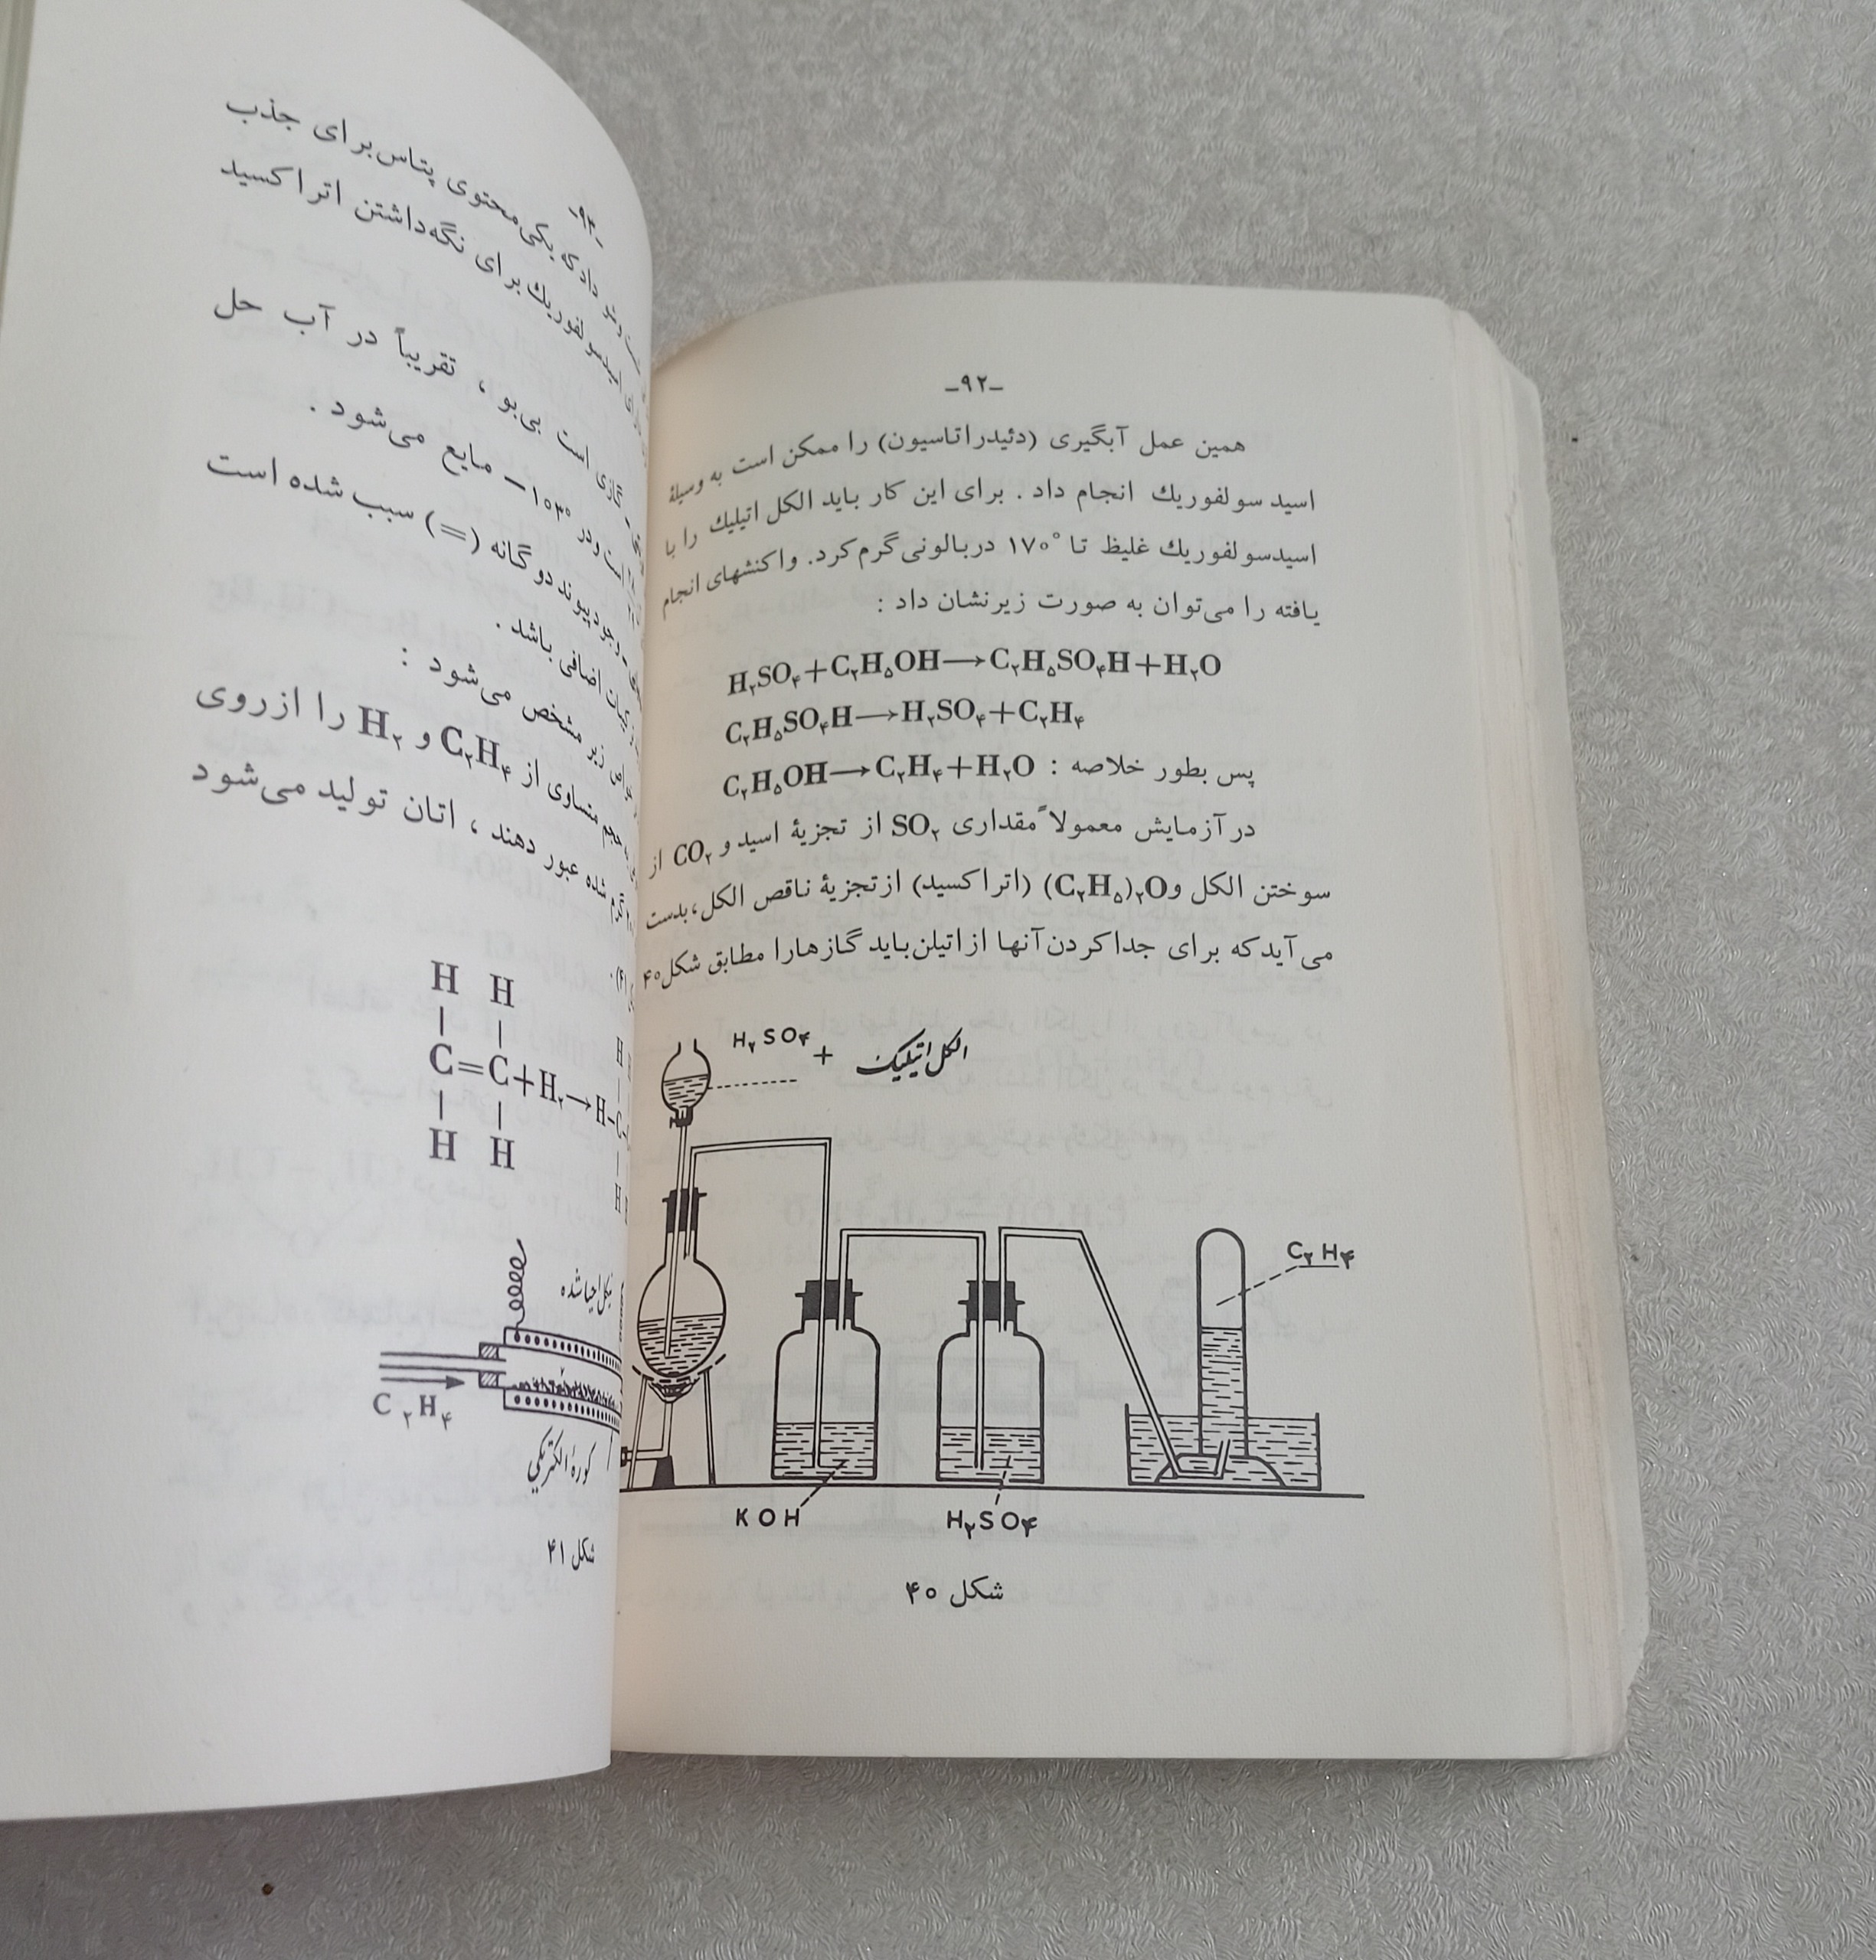 -۹۲-
همین عمل آبگیری (دئیدراتاسیون) را ممکن است به وسیلهٔ
اسید سولفوریك انجام داد . برای این کار باید الکل اتیلیك را با
اسیدسولفوریك غلیظ تا ۱۷۰° دربالونی گرم کرد. واکنشهای انجام
یافته را می‌توان به صورت زیرنشان داد :
H۲SO۴+C۲H۵OH→C۲H۵SO۴H+H۲O
C۲H۵SO۴H→H۲SO۴+C۲H۴
پس بطور خلاصه : C۲H۵OH→C۲H۴+H۲O
در آزمایش معمولاً مقداری SO۲ از تجزیهٔ اسید و CO۲ از
سوختن الکل و (C۲H۵)۲O (اتراکسید) ازتجزیهٔ ناقص الکل، بدست
می‌آید که برای جداکردن آنها ازاتیلن باید گازهارا مطابق شکل ۴۰
H۲SO۴ + الکل اتیلیک
C۲H۴
KOH
H۲SO۴
شکل ۴۰
-۹۳-
داد که یکی محتوی پتاس برای جذب
اسیدسولفوریك برای نگه‌داشتن اتراکسید
گازی است بی‌بو ، تقریباً در آب حل
است ودر ۱۰۳°- مایع می‌شود .
وجود پیوند دو گانه (=) سبب شده است
اضافی باشد .
زیر مشخص می‌شود :
حجم متساوی از C۲H۴ و H۲ را ازروی
گرم شده عبور دهند ، اتان تولید می‌شود
H H
C=C+H۲→H-C-
H H
نیکل احیا شده
C۲H۴
کورهٔ الکتریکی
شکل ۴۱